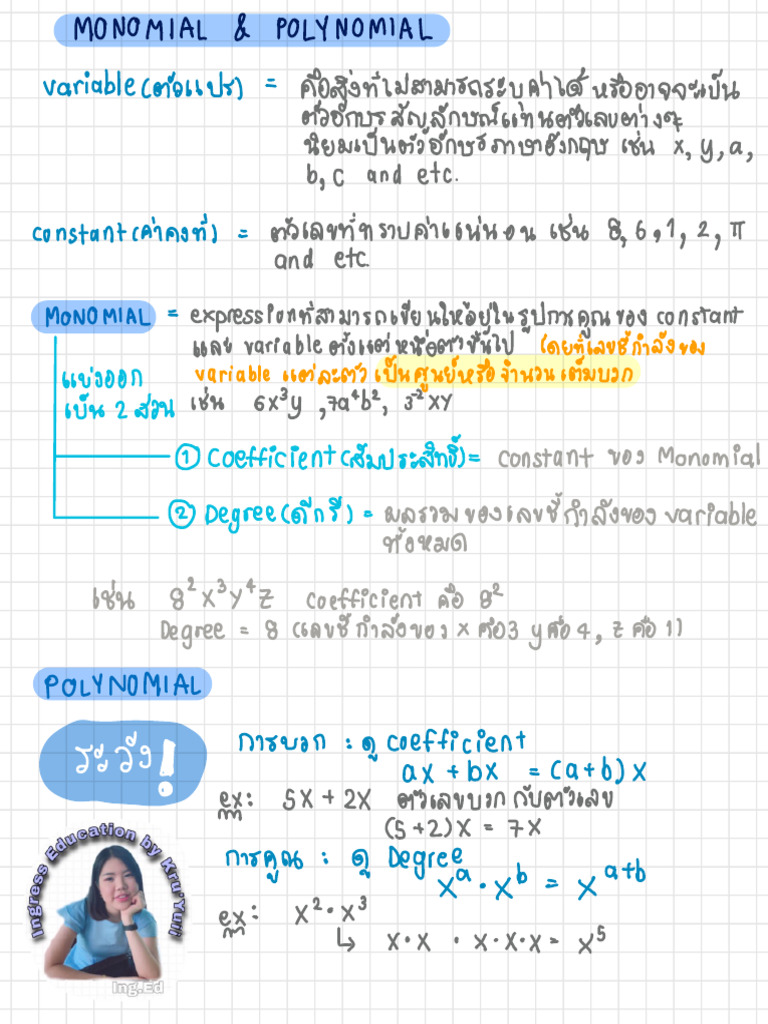 MONOMIAL & POLYNOMIAL
variable(ตัวแปร) = คือสิ่งที่ไม่สามารถระบุค่าได้ หรืออาจจะเป็น
ตัวอักษร สัญลักษณ์แทนตัวเลขต่างๆ
นิยมเป็นตัวอักษรภาษาอังกฤษ เช่น x, y, a,
b, c and etc.
constant(ค่าคงที่) = ตัวเลขที่ทราบค่าแน่นอน เช่น 8, 6, 1, 2, π
and etc.
MONOMIAL = expressionที่สามารถเขียนให้อยู่ในรูปการคูณของ constant
และ variable ตั้งแต่หนึ่งตัวขึ้นไป (โดยที่เลขชี้กำลังของ
variable แต่ละตัว เป็นศูนย์หรือจำนวนเต็มบวก
เช่น 6x³y , 7a⁴b², 3⁻²XY
แบ่งออก
เป็น 2 ส่วน
① Coefficient(สัมประสิทธิ์) = constant ของ Monomial
② Degree(ดีกรี) = ผลรวมของเลขชี้กำลังของ variable
ทั้งหมด
เช่น 8²X³Y⁴Z Coefficient คือ 8²
Degree = 8 (เลขชี้กำลังของ x คือ3 y คือ 4, z คือ 1)
POLYNOMIAL
ระวัง!
การบวก : ดู coefficient
ax + bx = (a+b)x
ex: 5X + 2X ตัวเลขบวกกับตัวเลข
(5+2)X = 7X
การคูณ : ดู Degree
xᵃ · xᵇ = xᵃ⁺ᵇ
ex: x² · x³
↳ x·x · x·x·x = x⁵
Ingress Education by Kru'Yuri
Ing.Ed